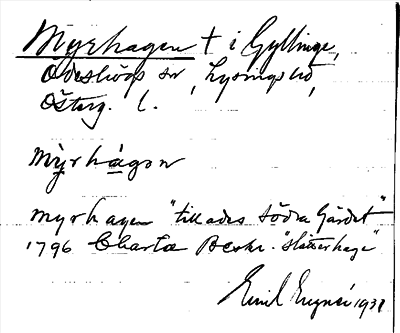 Myrhagen † i Gyllinge,
Ödeshögs sn, Lysings hd,
Österg. l.
mỳrhàgɷn
Myrhagen "till ades södra Gärdet"
1796 Charta Beskr. "slåtterhage"
Emil 1931